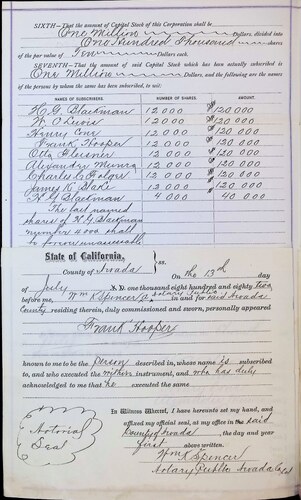 SIXTH—That the amount of Capital Stock of this Corporation shall be
One Million Dollars, divided into
One Hundred Thousand shares
of the par value of Ten Dollars each.
SEVENTH—That the amount of said Capital Stock which has been actually subscribed is
One Million Dollars, and the following are the names
of the persons by whom the same has been subscribed, to wit:
NAMES OF SUBSCRIBERS. NUMBER OF SHARES. AMOUNT.
H G Blackman 12000 $120.000
W. 12000 $120.000
Henry 12000 $120.000
Frank Hooper 12000 $120.000
Otto 12000 $120.000
Alexander Munro 12000 $120.000
Charles C Folger 12000 $120.000
James K 12000 $120.000
H G Blackman 4.000 40.000
The last named
shares of H G Blackman
number 4000 shall
be
State of California, ss.
County of Nevada
On the 13th day
of July A.D. one thousand eight hundred and eighty two
before me, Wm K Spencer a Notary Public in and for said Nevada
County residing therein, duly commissioned and sworn, personally appeared
Frank Hooper
known to me to be the person described in, whose name is subscribed
to, and who executed the within instrument, and who has duly
acknowledged to me that he executed the same
In Witness Whereof, I have hereunto set my hand, and
affixed my official seal, at my office in the said
County of Nevada, the day and year
first above written.
Wm K Spencer
Notary Public Nevada Co Cal
Notorial
Seal